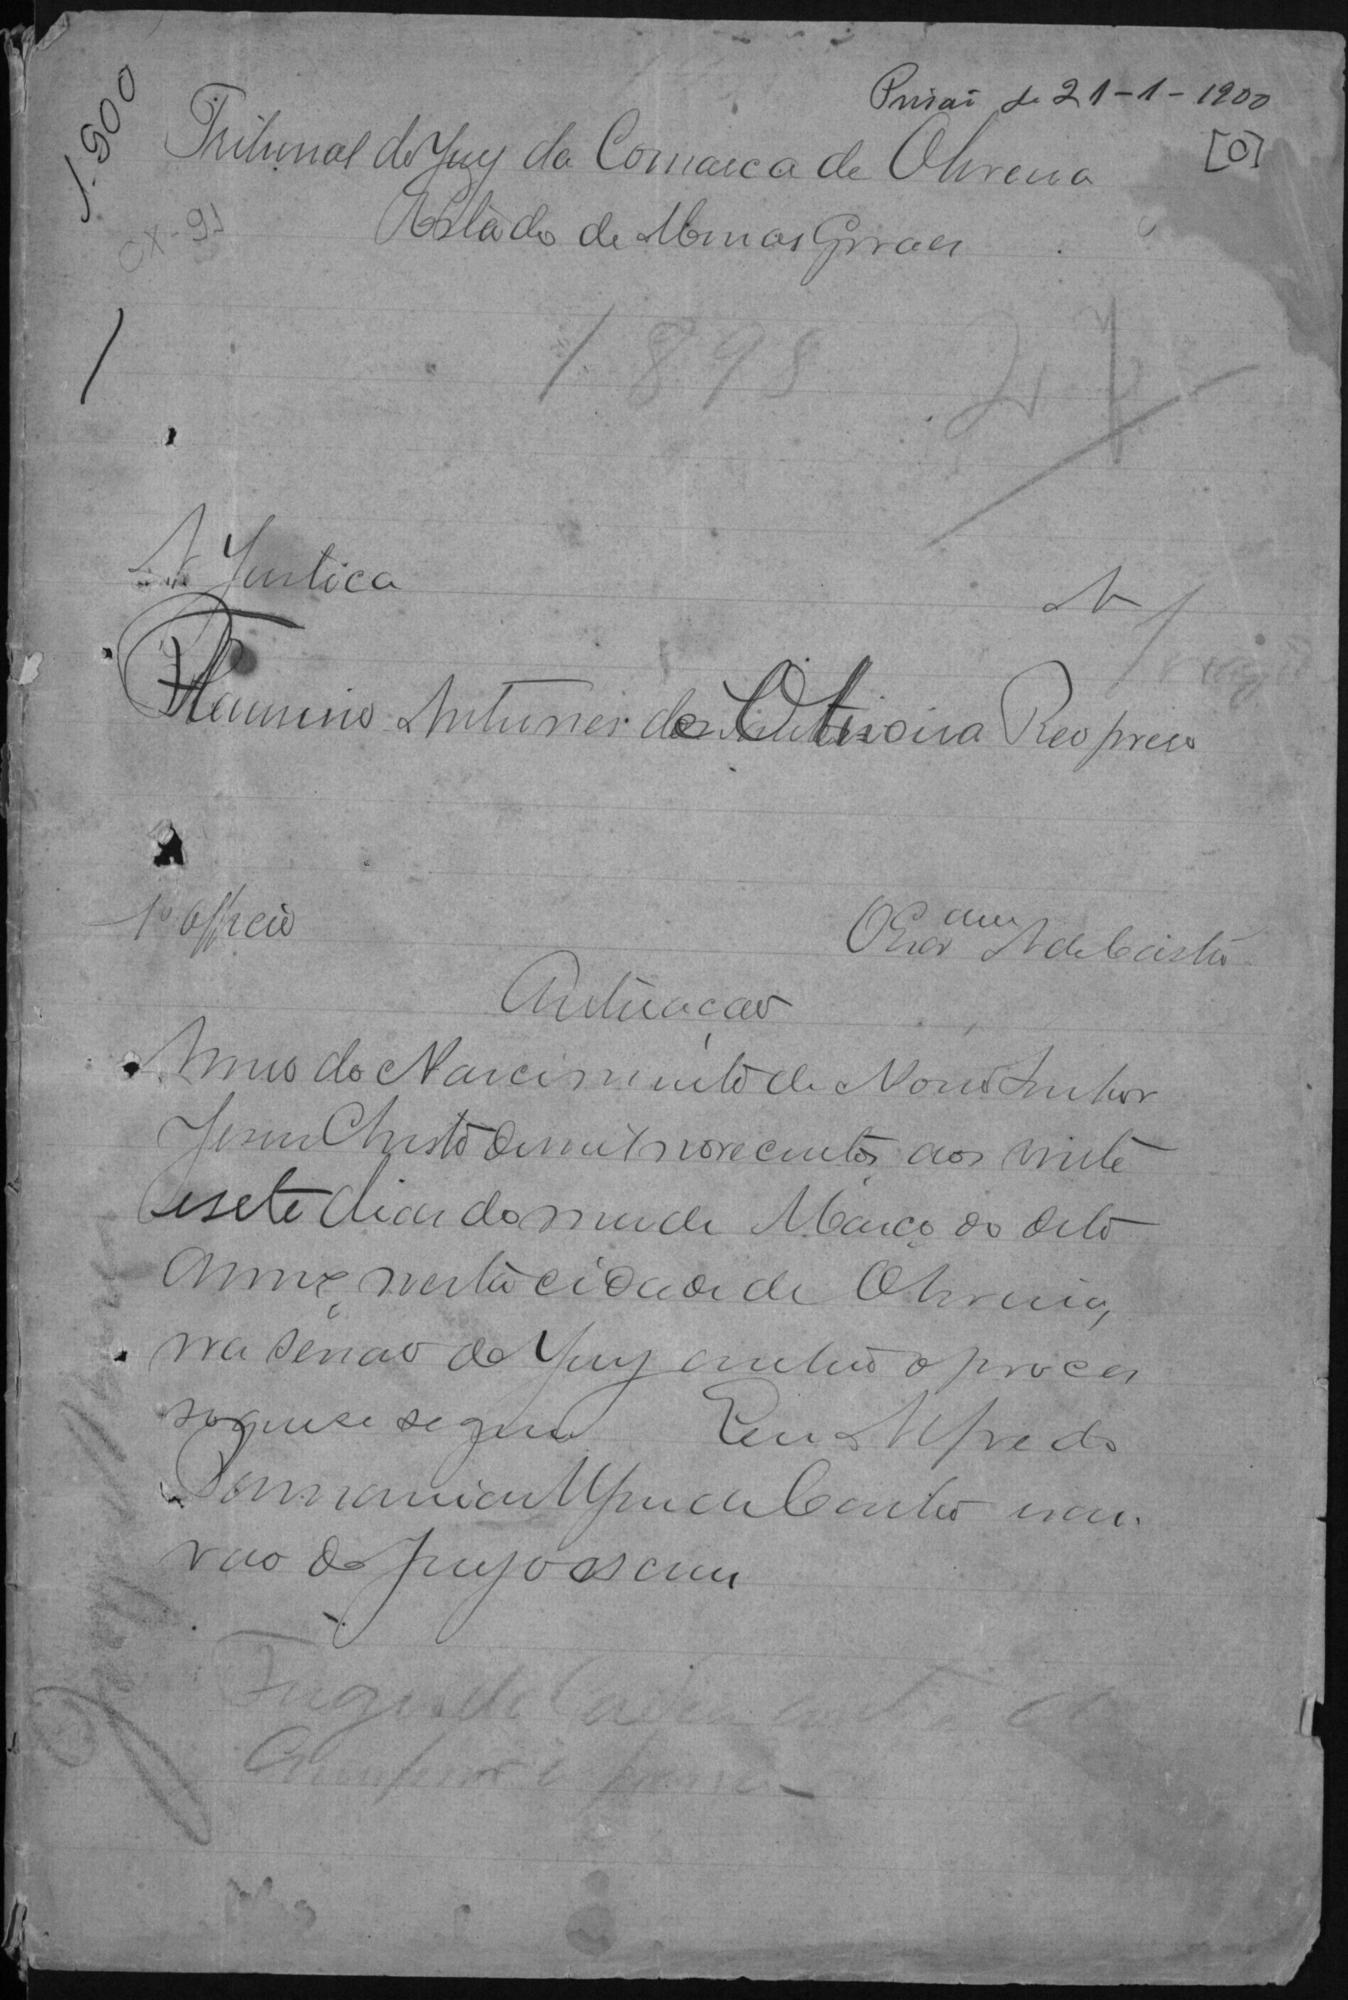 1.900
Prisão de 21-1-1900
[0]
Tribunal do Jury da Comarca de Oliveira
Estado de Minas Geraes
CX-91
1898
27
A Justica
A
Flaminio Antunes de Oliveira Reo preso
1º officio
O Escr.am A de Castro
Autuação
Anno do Nascimento de Nosso Senhor
Jesus Christo de mil novecentos, aos vinte
e sete dias do mez de Março do dito
anno, nesta cidade de Oliveira,
na sessão do Jury autuo o proces
so que se segue Eu Alfredo
Alves de Castro escri
vão do jury o escrevi
Fugio da Cadea
cumprir a pena